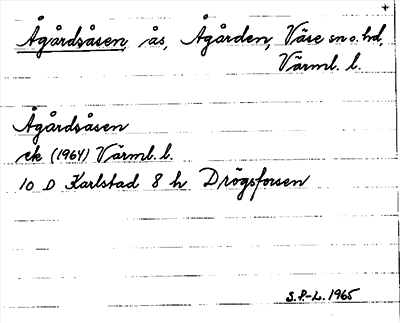 Ågårdsåsen, ås, Ågården, Väse sn o. hd,
Värml. l.
Ågårdsåsen
ek (1964) Värml. l.
10 D Karlstad 8 h Drögsforsen
S.P.-L. 1965